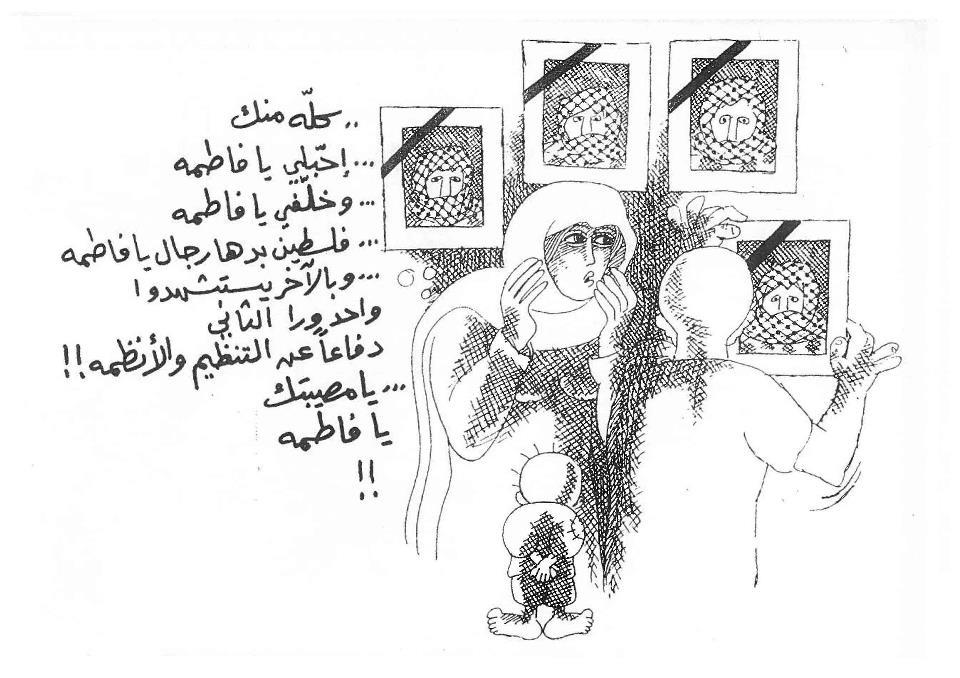 .. كلّه منك
... إحبلي يا فاطمه
... وخلّفي يا فاطمه
... فلسطين بدها رجال يا فاطمه
... وبالآخر يستشهدوا
واحد ورا الثاني
دفاعاً عن التنظيم والأنظمه !!
... يا مصيبتك
يا فاطمه
!!